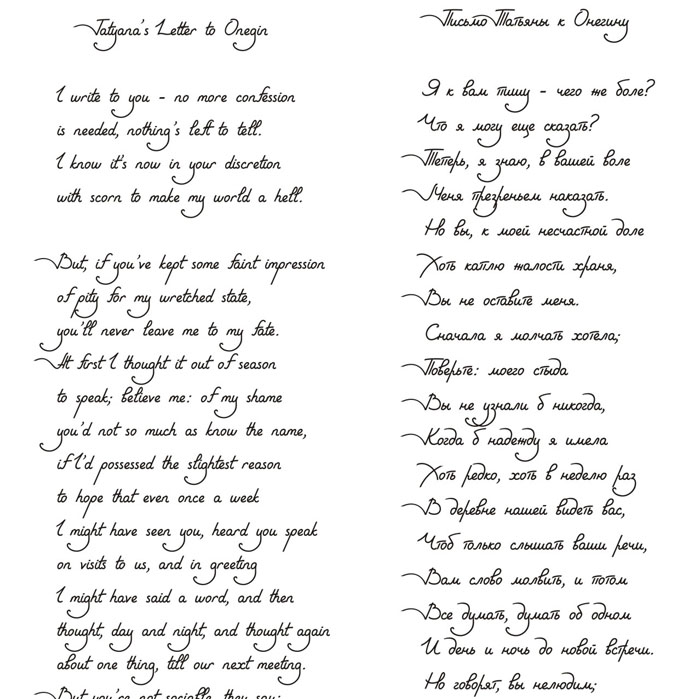 Tatyana's Letter to Onegin
I write to you - no more confession
is needed, nothing's left to tell.
I know it's now in your discretion
with scorn to make my world a hell.
But, if you've kept some faint impression
of pity for my wretched state,
you'll never leave me to my fate.
At first I thought it out of season
to speak; believe me: of my shame
you'd not so much as know the name,
if I'd possessed the slightest reason
to hope that even once a week
I might have seen you, heard you speak
on visits to us, and in greeting
I might have said a word, and then
thought, day and night, and thought again
about one thing, till our next meeting.
But you're not sociable, they say:
Письмо Татьяны к Онегину
Я к вам пишу - чего же боле?
Что я могу еще сказать?
Теперь, я знаю, в вашей воле
Меня презреньем наказать.
Но вы, к моей несчастной доле
Хоть каплю жалости храня,
Вы не оставите меня.
Сначала я молчать хотела;
Поверьте: моего стыда
Вы не узнали б никогда,
Когда б надежду я имела
Хоть редко, хоть в неделю раз
В деревне нашей видеть вас,
Чтоб только слышать ваши речи,
Вам слово молвить, и потом
Все думать, думать об одном
И день и ночь до новой встречи.
Но говорят, вы нелюдим;